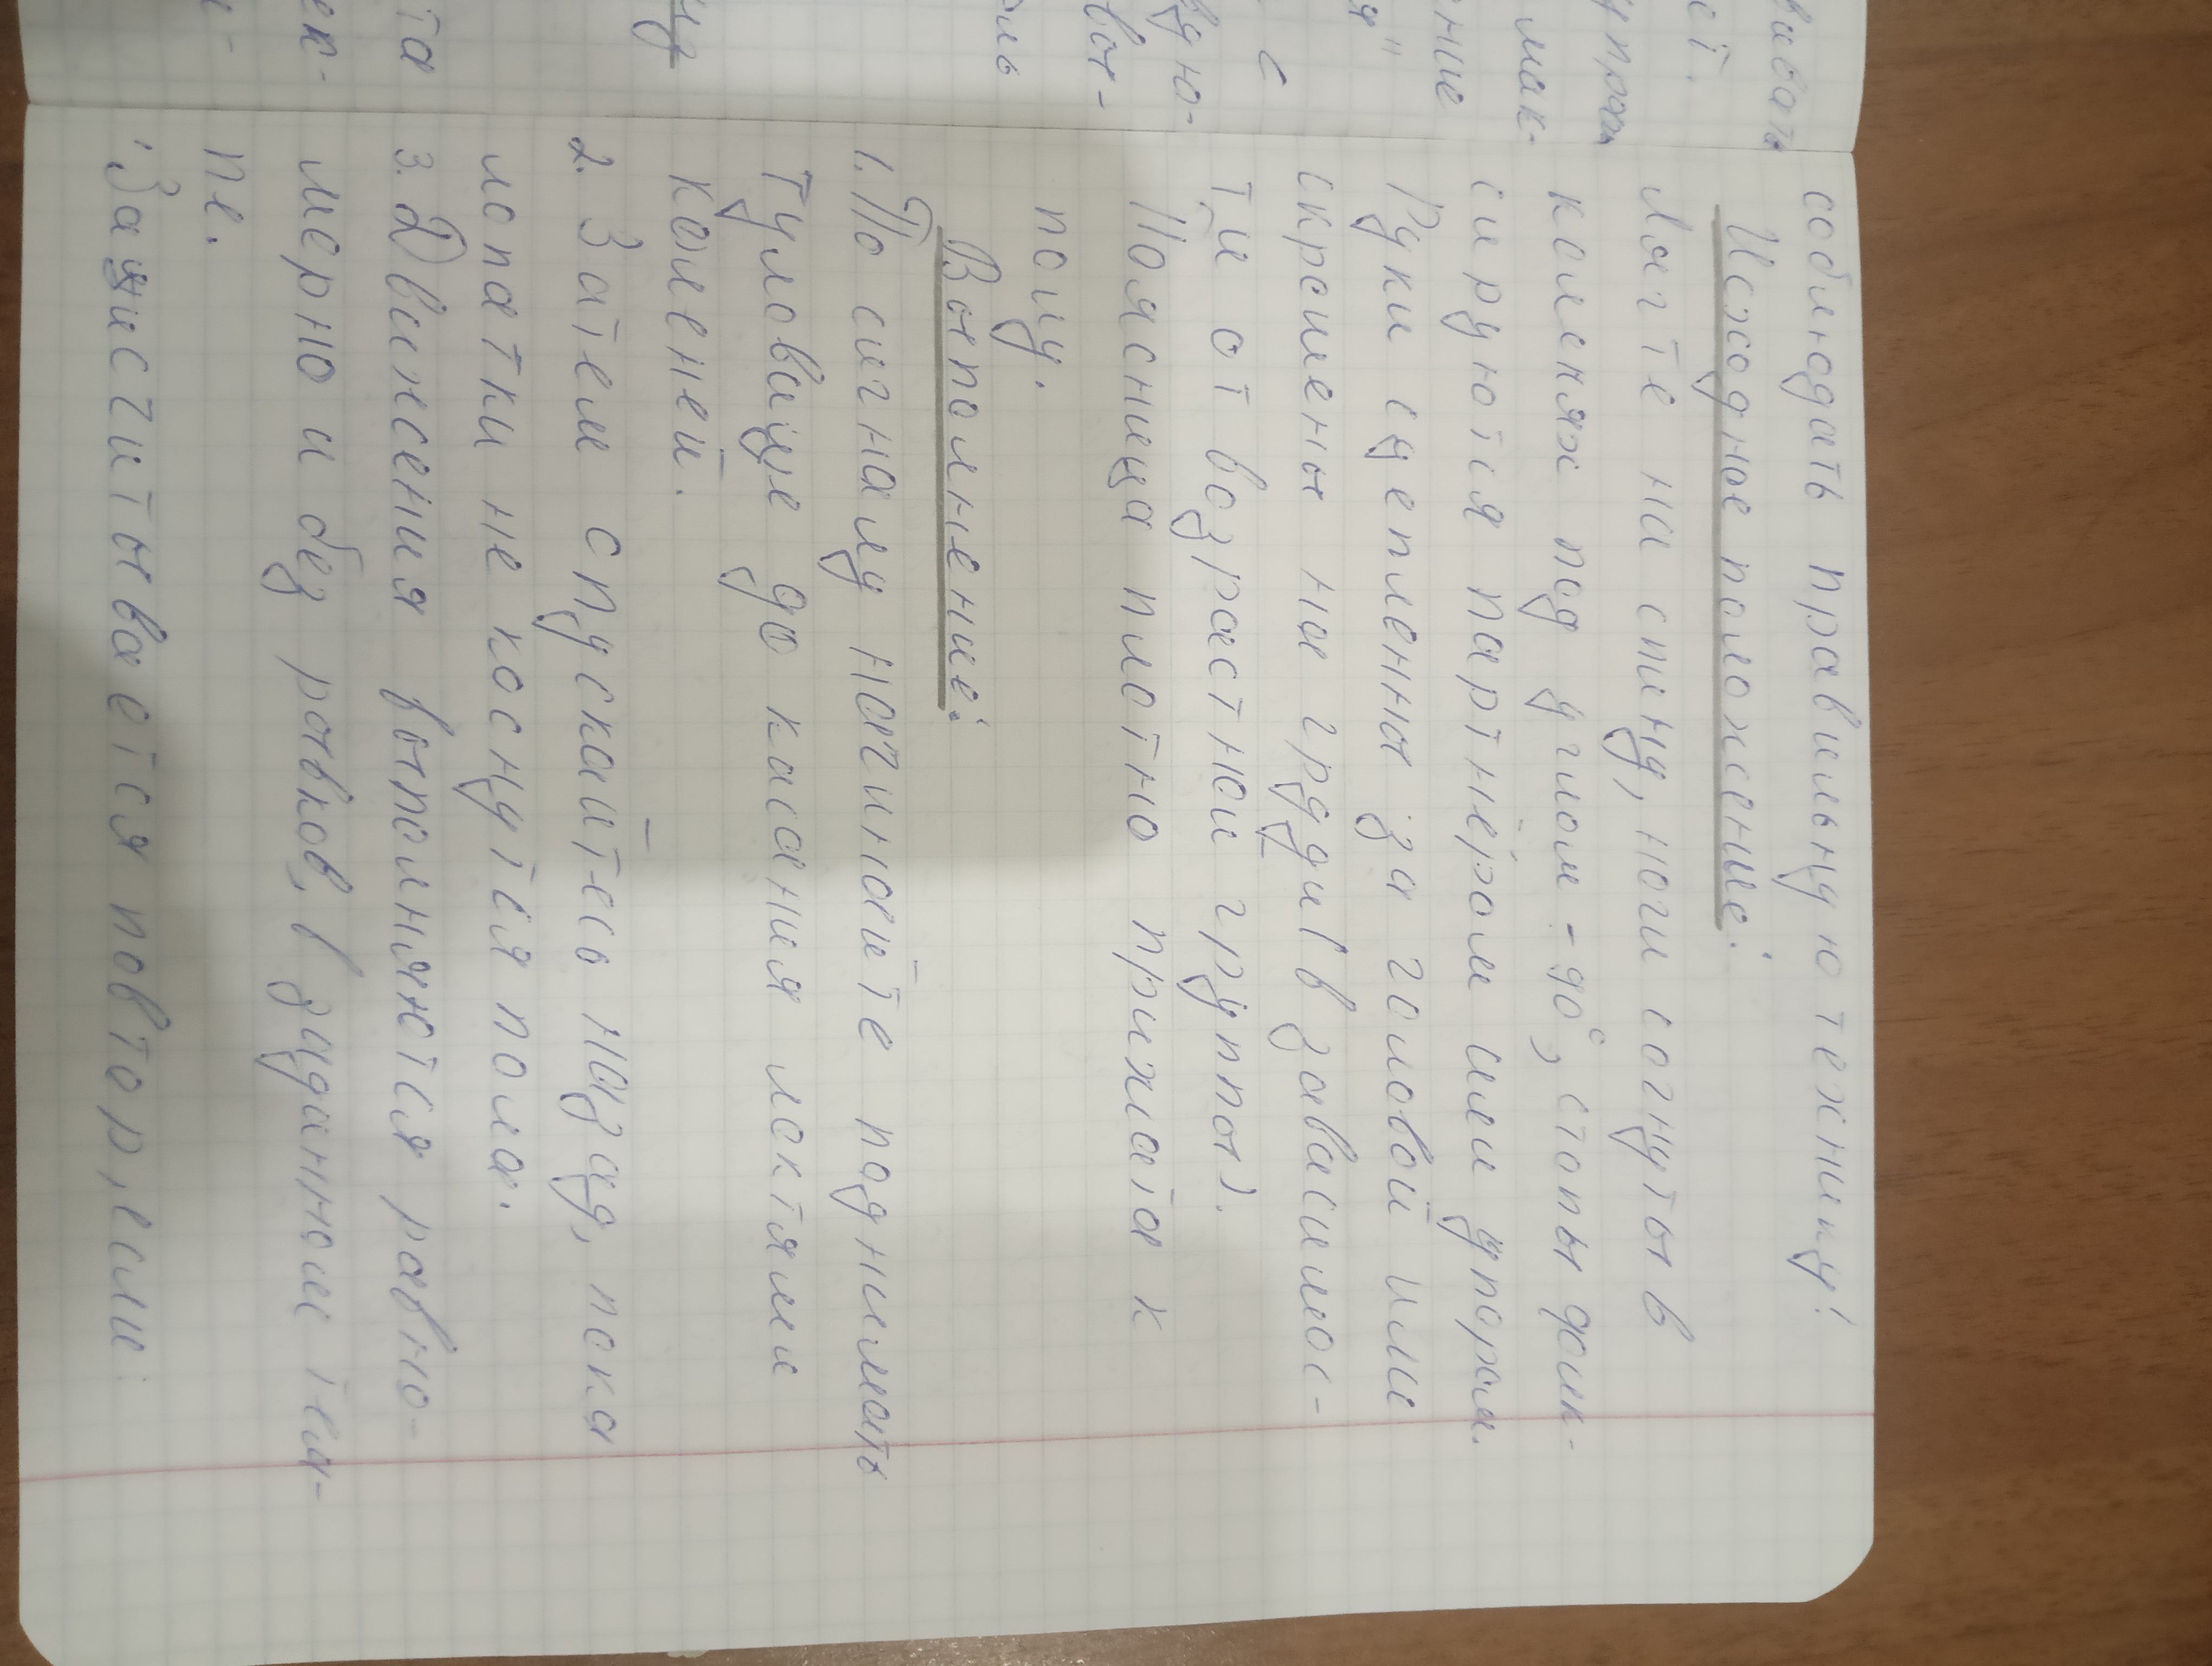 соблюдать правильную технику!
Исходное положение:
Лягте на спину, ноги согнуты в
коленях под углом - 90°, стопы фик-
сируются партнёром или упором.
Руки сцеплены за головой или
скрещены на груди (в зависимос-
ти от возрастной группы).
Поясница плотно прижата к
полу.
Выполнение:
1. По сигналу начинайте поднимать
туловище до касания локтями
коленей.
2. Затем опускайтесь назад, пока
лопатки не коснутся пола.
3. Движения выполняются равно-
мерно и без рывков, в заданном тем-
пе.
Засчитывается повтор, если:
вивать
ет.
упраж
мак-
ение
я"
с
удно-
выт-
ель
та
ек-